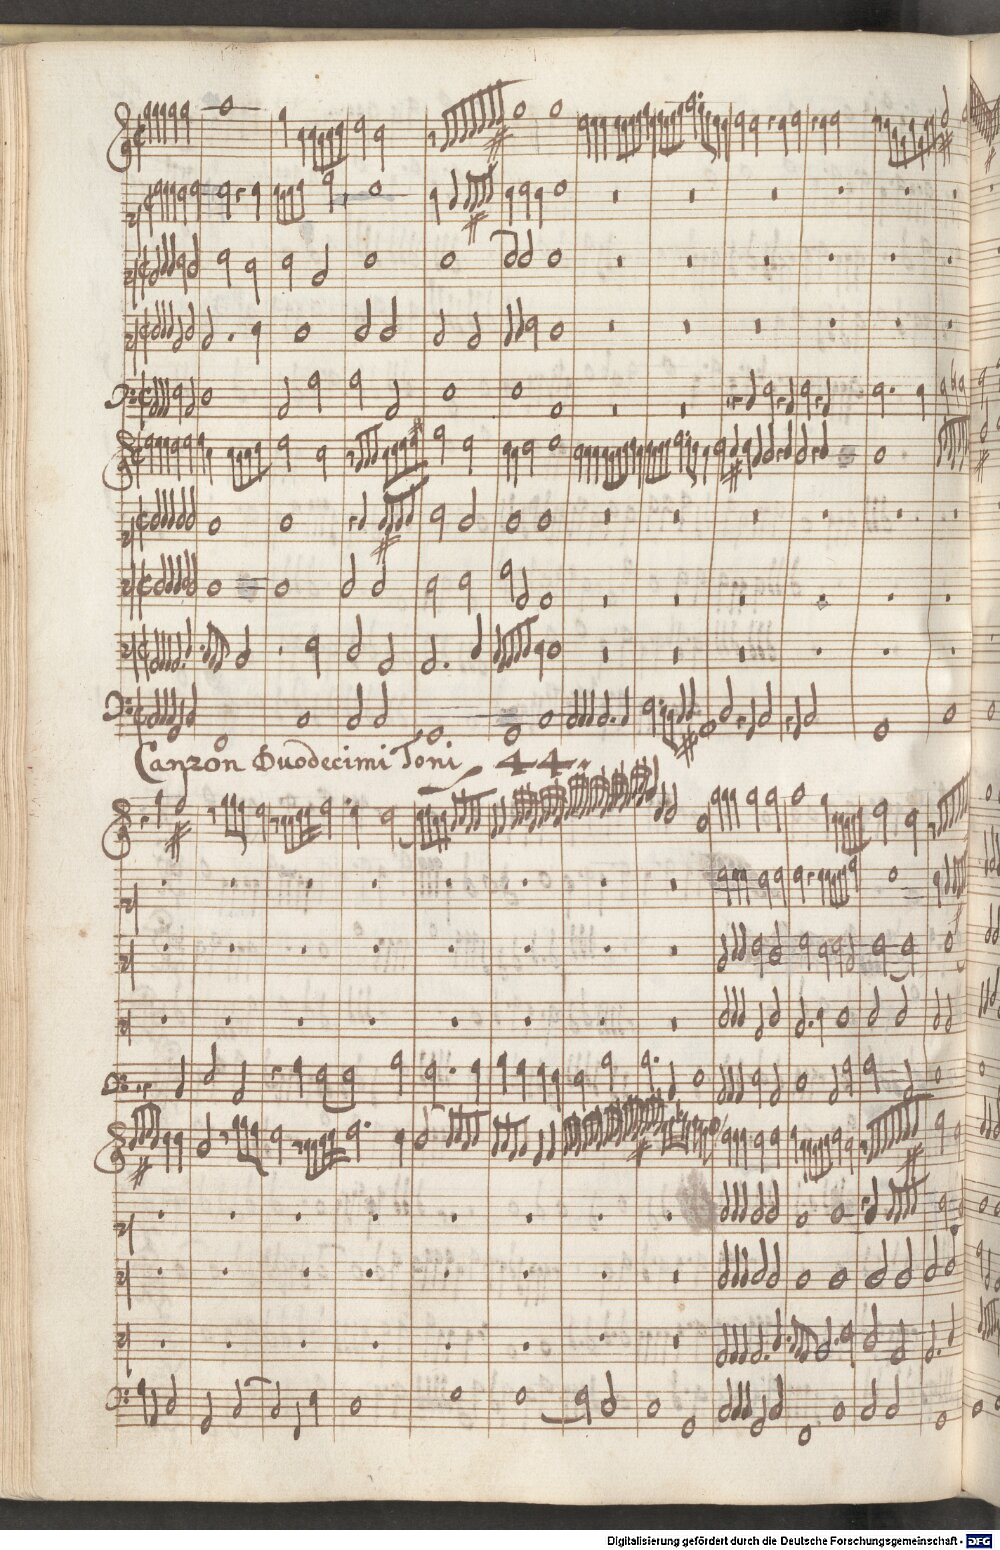 Canzon Duodecimi Toni 44.
Digitalisierung gefördert durch die Deutsche Forschungsgemeinschaft - DFG